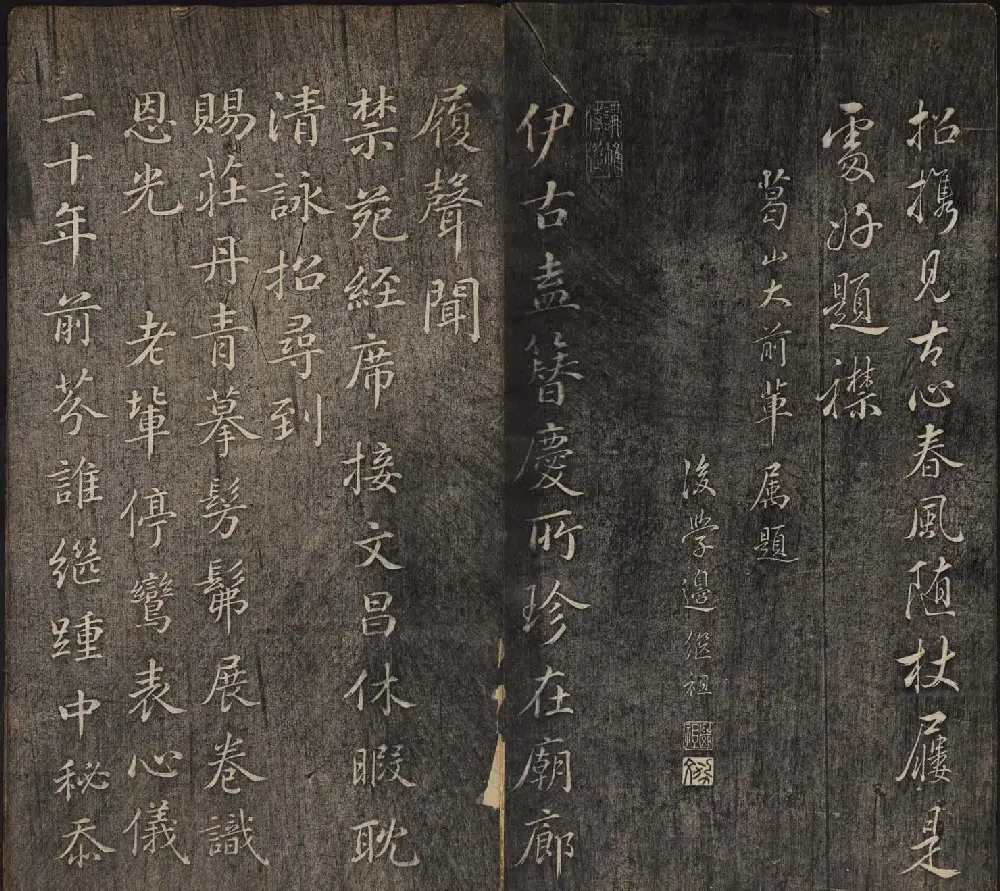 招攜見古心春風随杖屨是
處好題襟
葛山大前軰属題
後學邉繼祖
伊古盍簪慶所珍在廟廊
履聲聞
禁苑經席接文昌休暇耽
清詠招尋到
賜莊丹青摹髣髴展卷識
恩光老軰停鸞表心儀
二十年前芬誰継踵中秘忝